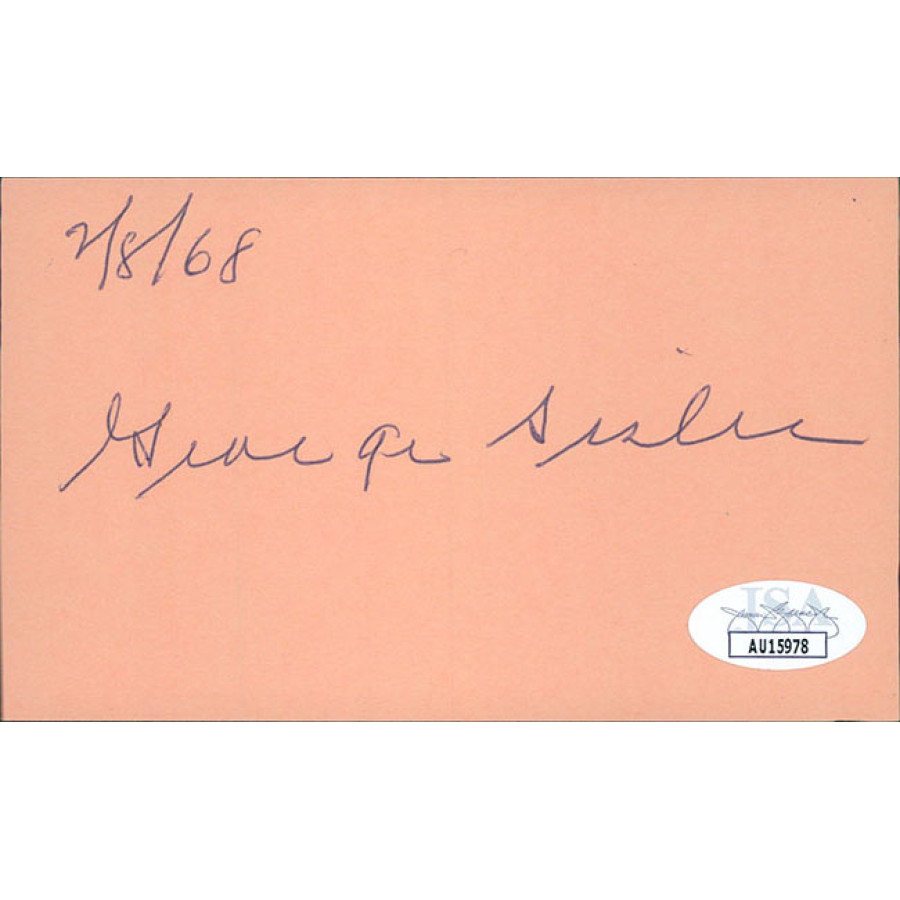 2/8/68
George Sisler
JSA
AU15978